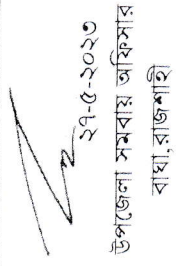 ২৭-৫-২০২৩
উপজেলা সমবায় অফিসার
বাঘা,রাজশাহী